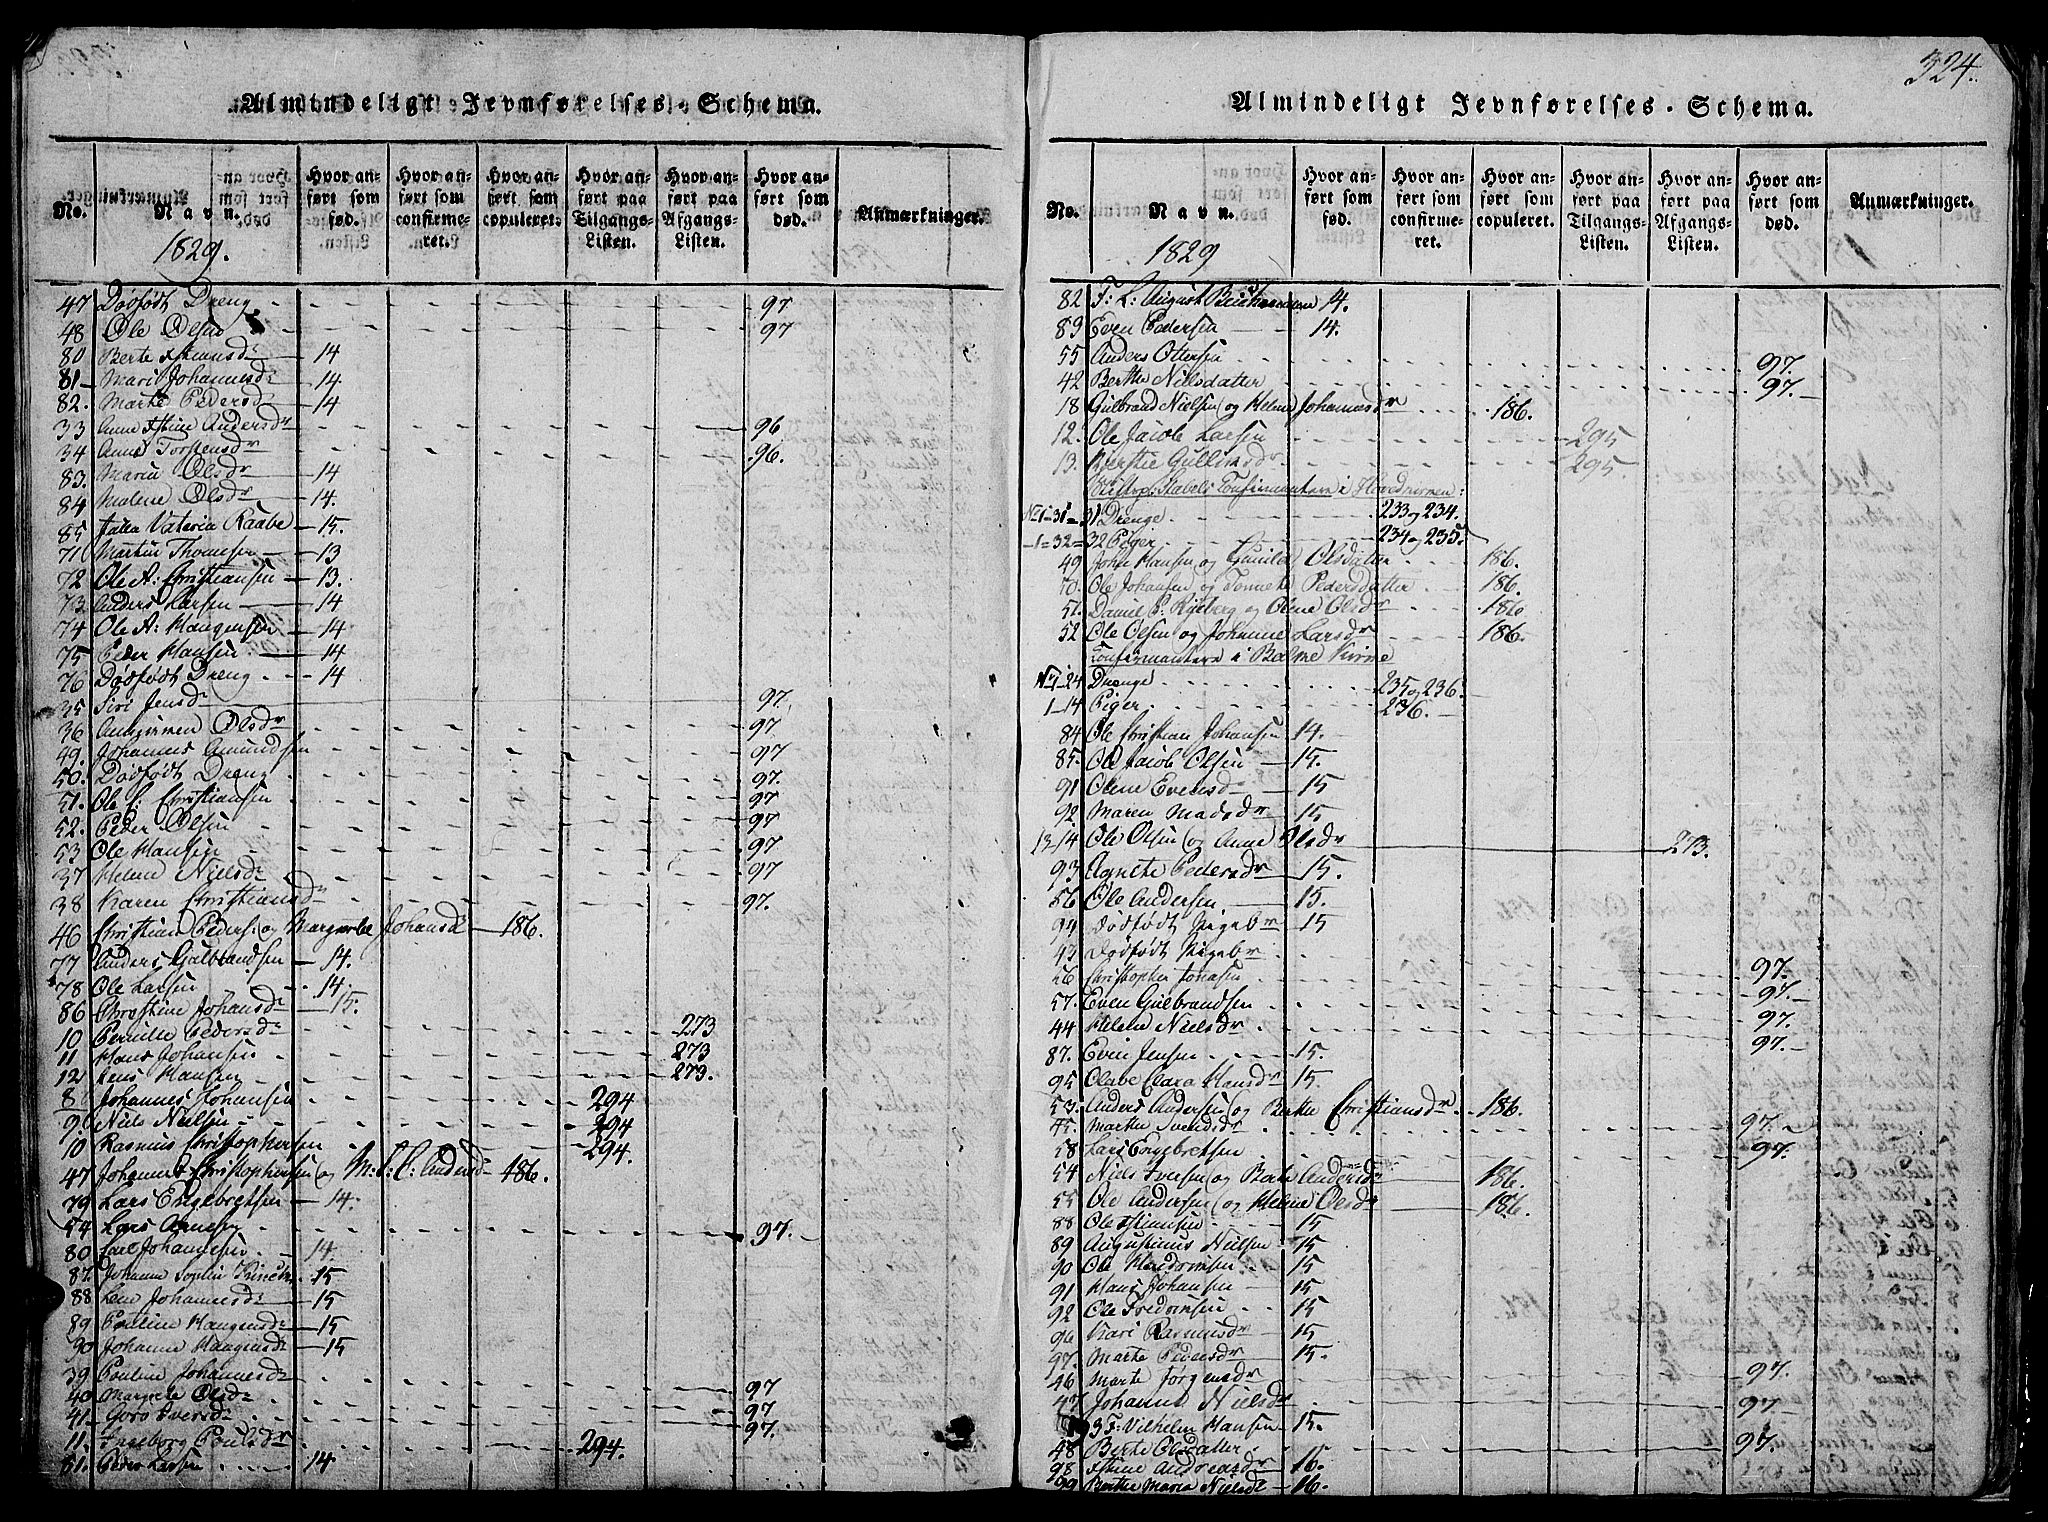 324.
Almindeligt Jevnførelses-Schema.
No. Navn. Hvor anført som fød. Hvor anført som confirmeret. Hvor anført som copuleret. Hvor anført paa Tilgangs-Listen. Hvor anført paa Afgangs-Listen. Hvor anført som død. Anmærkninger.
1829.
47 Dødfødt Dreng 97
48 Ole Olsen 97
80 Berte 14
81 Mari Johannesdr 14
82. Marte Pedersdr 14
33 Anne Andersdr 96
34 Anne Torstensdr 96.
83. Maria Olsdr 14
84 Malene Olsdr 14.
85 Valeria Raabe 15.
71 Martin Thomsen 13
72 Ole A: Christiansen 13.
73 Anders Larsen 14
74 Ole A: Haugensen 14
75 Peder Hansen 14
76 Dødfødt Dreng 14
35 Siri Jensdr 97.
36 Olsdr 97
49. Johannes Amundsen 97
50. Dødfødt Dreng 97.
51. Ole C: Christiansen 97
52. Peder Olsen 97
53 Ole Hansen 97
37 Helene Nielsdr 97
38 Karen Christiansdr 97.
46 Christian Peders: og Margrethe Johansdr 186.
77 Anders Gulbrandsen 14.
78 Ole Larsen 14.
86 Christine Johansdr 15.
10 Pernille Pedersdr 273
11 Hans Johansen 273
12 Jens Hansen 273.
8 Johannes Johansen 294
9. Niels Nielsen 294
10 Rasmus Christophersen 294.
47 Johannes Christophersen og M: C: Andersdr 186.
79 Lars Engebretsen 14.
54 Lars 97.
80 Carl Johannesen 14.
87. Johanne Sophie 15
88 Lene Johannesdr 15
89 Pauline Haugensdr 15
90 Johanne Haugensdr 15
39 Pauline Johannesdr 97
40 Margrete Olsdr 97
41 Goro Iversdr 97.
11. Ingeborg Poulsdr 294.
81. Peder Larsen 14
Almindeligt Jevnførelses-Schema.
No. Navn. Hvor anført som fød. Hvor anført som confirmeret. Hvor anført som copuleret. Hvor anført paa Tilgangs-Listen. Hvor anført paa Afgangs-Listen. Hvor anført som død. Anmærkninger.
1829
82 F: L: August 14.
89 Even Pedersen 14.
55 Anders Ottersen 97.
42 Berthe Nielsdatter 97.
18 Gulbrand Nielsen og Helene Johannesdr 186.
12. Ole Jacob Larsen 295
13. Kjerstie 295
Confirmantere i Hovedkirken:
No 1-31 = 31 Drenge 233 og 234.
1-32 = 32 Piger 234 og 235
49 John Hansen og Gunild Olsdatter 186.
70 Ole Johansen og Tonnette Pedersdatter 186.
51. Daniel P: Ryeberg og Olene Olsdr 186
52 Ole Olsen og Johanne Larsdr 186.
Confirmantere i Balke Kirke
No 1-24 Drenge 235 og 236.
1-14 Piger 236.
84 Ole Christian Johansen 14.
85. Ole Jacob Olsen 15.
91 Olene Evensdr 15
92 Maren Madsdr 15
13-14 Ole Olsen og Anne Olsdr 273.
93 Agnete Pedersdr 15.
86 Ole Andersen 15.
94 Dødfødt Pigeb: 15
43 Dødfødt Pigeb: 97.
56 Christopher Jonasen 97.
57. Even Gulbrandsen 97.
44 Helene Nielsdr 97.
87. Even Jensen 15.
95 Olave Clara Hansdr 15.
53. Anders Andersen og Berthe Christiansdr 186.
45. Marthe Svendsdr 97.
58 Lars Engebretsen 97.
54 Niels Iversen og Berte Andersdr 186.
55 Ole Andersen og Helene Olsdr 186.
88 Ole 15
89 Augustinus Nielsen 15
90 Ole 15
91 Hans Johansen 15
92 Ole Fredriksen 15
96 Kari Rasmusdr 15
97. Marte Pedersdr 15.
46 Marte Jørgensdr 97.
47 Johanne Nielsdr 97
93 F: Vilhelm Hansen 15.
48 Berte Olsdatter 97.
98 Andreasdr 16.
99 Berthe Maria Nielsdr 16.